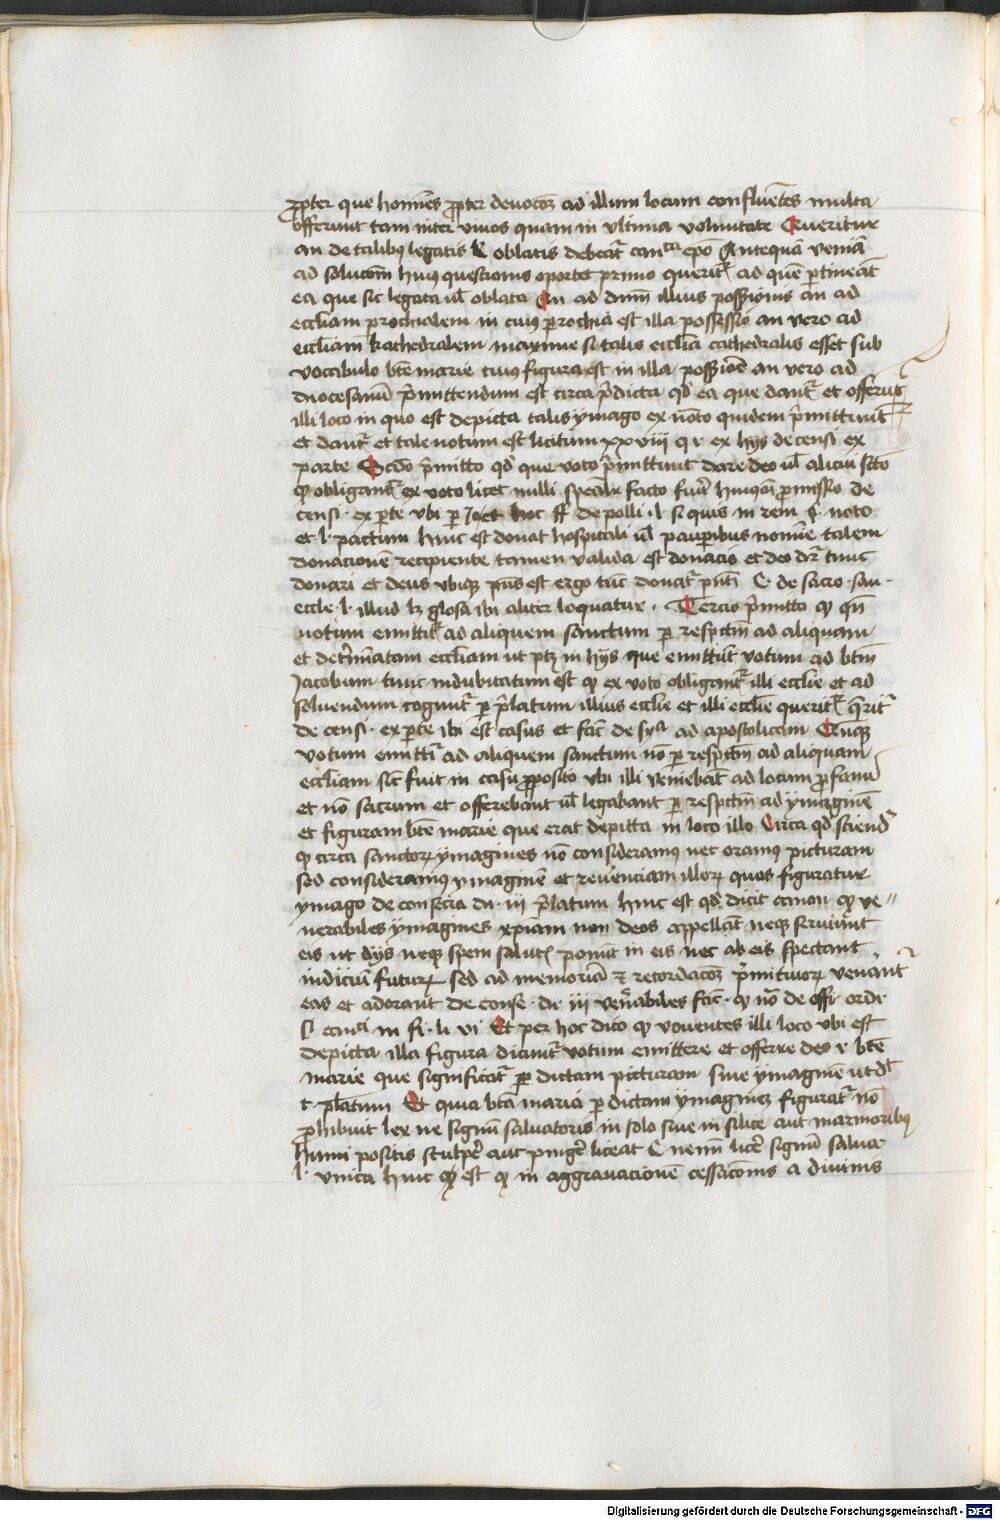 propter que homines propter devocoē ad illum locum confluētes multa
offerunt tam inter vivos quam in ultima voluntate Queritur
an de talibꝰ legatis & oblatis debeat᷑ can^ca epō Antequā veniā
ad solucōm huiꝰ questionis oportet primo querit᷑ ad quē ꝑtineāt
ea que sic legata ul oblata An ad dnm̄ illius possessionis an ad
eccliam prochialem in cuiꝰ prochia est illa possessio an vero ad
eccliam kathedralem maxime si talis ecclia cathedralis esset sub
vocabulo bte marie cuius figura est in illa possessiōe an vero ad
diocesanū p̄mittendum est circa p̄dicta qd ea que dant᷑ et offerūt᷑
illi loco in quo est depicta talis ymago ex uoto quidem p̄mittunt᷑
et dant᷑ et tale uotum est licitum xxviii q i ex hys de censi ex
parte Scdo p̄mitto qd que voto p̄mittunt dare deo ul alicui scto
ꝙ obligant᷑ ex voto licet nulli spealr facto fuerit huiꝰmōi promissio de
censi · ex parte ubi per hoc ff de polli · l si quis in rem § uoto
et l · pactum hinc est donat hospitali ul pauperibus nomine talem
donacionē recipiente tamen valida est donacio et deo dr̄ tunc
donari et deus ubiqꝫ pn̄s est ergo tūc donat᷑ pn̄ti C de sacro · san ·
eccle · l · illud lꝫ glosa ibi aliter loquatur · Tercio p̄mitto ꝙ qn̄
uotum emittit᷑ ad aliquem sanctum per respectū ad aliquam
et det᷑minatam eccliam ut ptꝫ in hys que emittūt votum ad btm̄
Jacobum tunc indubitatum est ꝙ ex voto obligant᷑ illi ecclie et ad
soluendum cogunt᷑ per p̄latum illius ecclie et illi ecclie querit᷑
de censi · ex parte ibi est casus et facit de sy^a ad apostolicam
votum emittit᷑ ad aliquem sanctum nō per respectū ad aliquam
eccliam sic fuit in casu proposito ubi illi veniebāt ad locum profanū
et nō sacrum et offerebant ul legabant per respectū ad ymaginē
et figuram bte marie que erat depicta in loco illo Circa qd sciend᷑
ꝙ circa sanctoꝝ ymagines nō consideramꝰ nec oramꝰ picturam
sed consideramꝰ ymaginē et reuerenciam illoꝝ quos figuratur
ymago de consecra di · iii p̄latum hinc est qd dicit canon ꝙ ve-
nerabiles ymagines xpiani non deos appellāt neqꝫ seruiunt
eis ut dys neqꝫ spem salutis ponūt in eis nec ab eis spectant
iudiciū futuꝝ sed ad memoriā et recordacoē primitiuoꝝ venerant᷑
eas et adorant de conse · di · iii venerabiles facit · ꝙ no de offi · ordi ·
in fi · li vi Et per hoc dico ꝙ vouentes illi loco ubi est
depicta illa figura dicunt᷑ votum emittere et offerre deo et bte
marie que significat᷑ per dictam picturam siue ymaginē ut d^t
c p̄latum Et quia bta maria per dictam ymaginē figurat᷑ nō
prohibuit lex ne signū saluatoris in solo siue in silice aut marmoribꝰ
humi positis sculpere aut pingere liceat C nemini licere signū saluat
l · unica hinc est ꝙ in aggrauacionē cessacōnis a diuinis
Digitalisierung gefördert durch die Deutsche Forschungsgemeinschaft - DFG